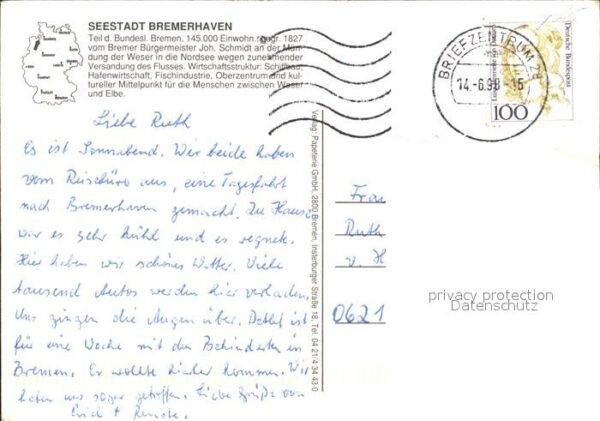 SEESTADT BREMERHAVEN
Teil d. Bundesl. Bremen, 145.000 Einwohn. gegr. 1827
vom Bremer Bürgermeister Joh. Schmidt an der Mün-
dung der Weser in die Nordsee wegen zunehmender
Versandung des Flusses. Wirtschaftsstruktur: Schiffbau,
Hafenwirtschaft, Fischindustrie, Oberzentrum und kul-
tureller Mittelpunkt für die Menschen zwischen Weser
und Elbe.
Liebe Ruth
Es ist Sonnabend. Wir beide haben
vom Reisebüro aus, eine Tagesfahrt
nach Bremerhaven gemacht. Zu Hause
war es sehr kühl und es regnete.
Hier haben wir schönes Wetter. Viele
tausend Autos werden hier verladen.
Uns gingen die Augen über. Detlef ist
für eine Woche mit den Behinderten in
Bremen. Er wollte hierher kommen. Wir
haben uns sogar getroffen. Liebe Grüße von
Erich +
Verlag: Papeterie GmbH, 2800 Bremen, Insterburger Straße 18, Tel. 04 21/4 34 43-0
BRIEFZENTRUM 28
14.-6.98-15
Deutsche Bundespost
100
Frau
Ruth
v. H
0621
privacy protection
Datenschutz